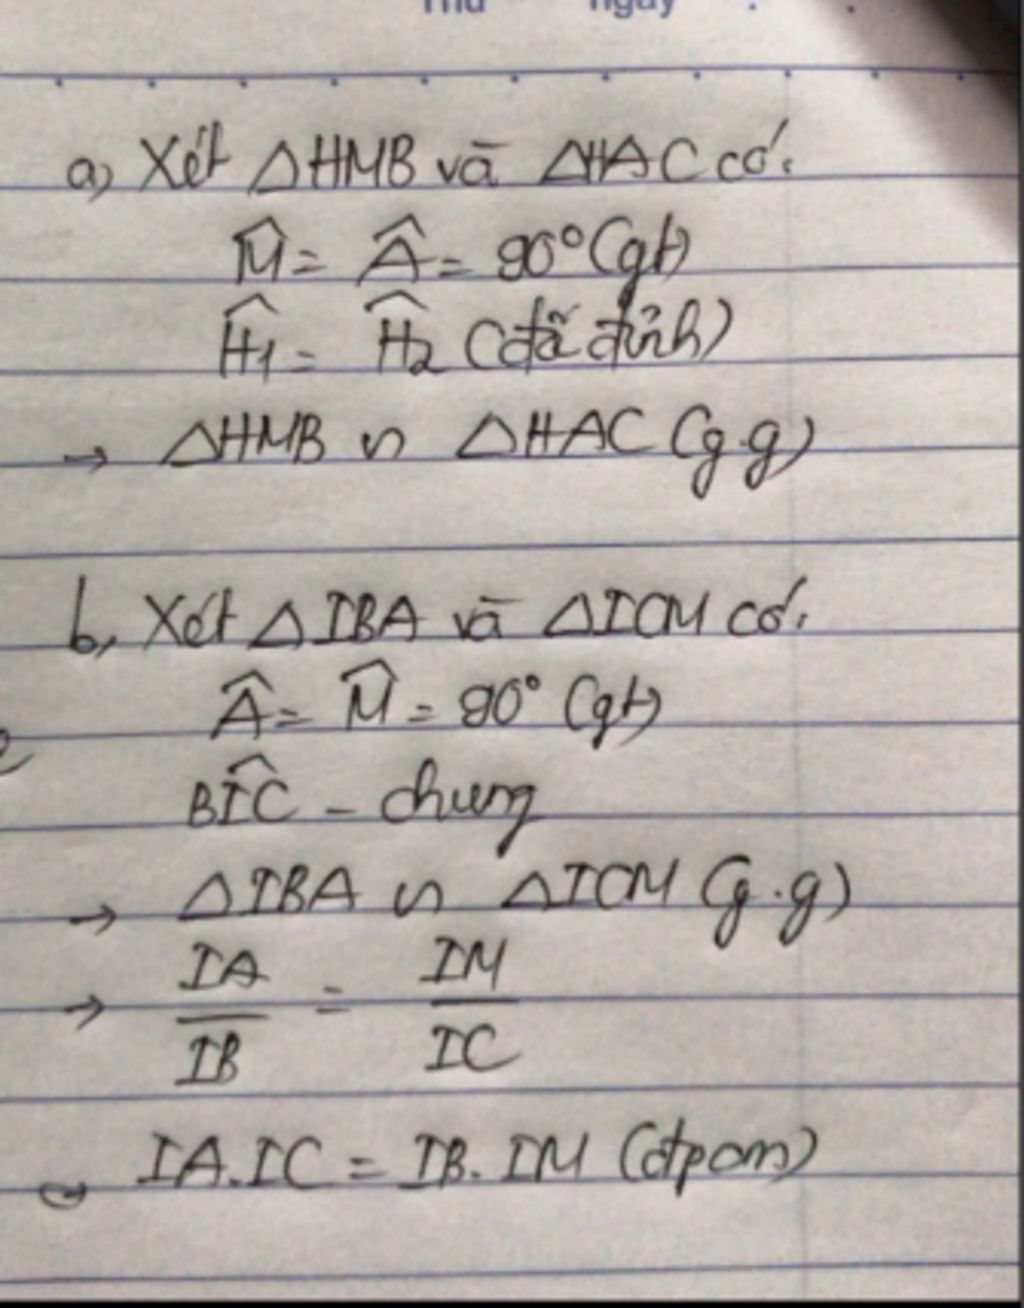 Thứ ngày
a, Xét ΔHMB và ΔHAC có:
M̂ = Â = 90° (gt)
Ĥ1 = Ĥ2 (đđ đỉnh)
→ ΔHMB ∽ ΔHAC (g.g)
b, Xét ΔIBA và ΔICM có:
Â = M̂ = 90° (gt)
BÎC - chung
→ ΔIBA ∽ ΔICM (g.g)
→ IA/IB = IM/IC
IA.IC = IB.IM (đpcm)